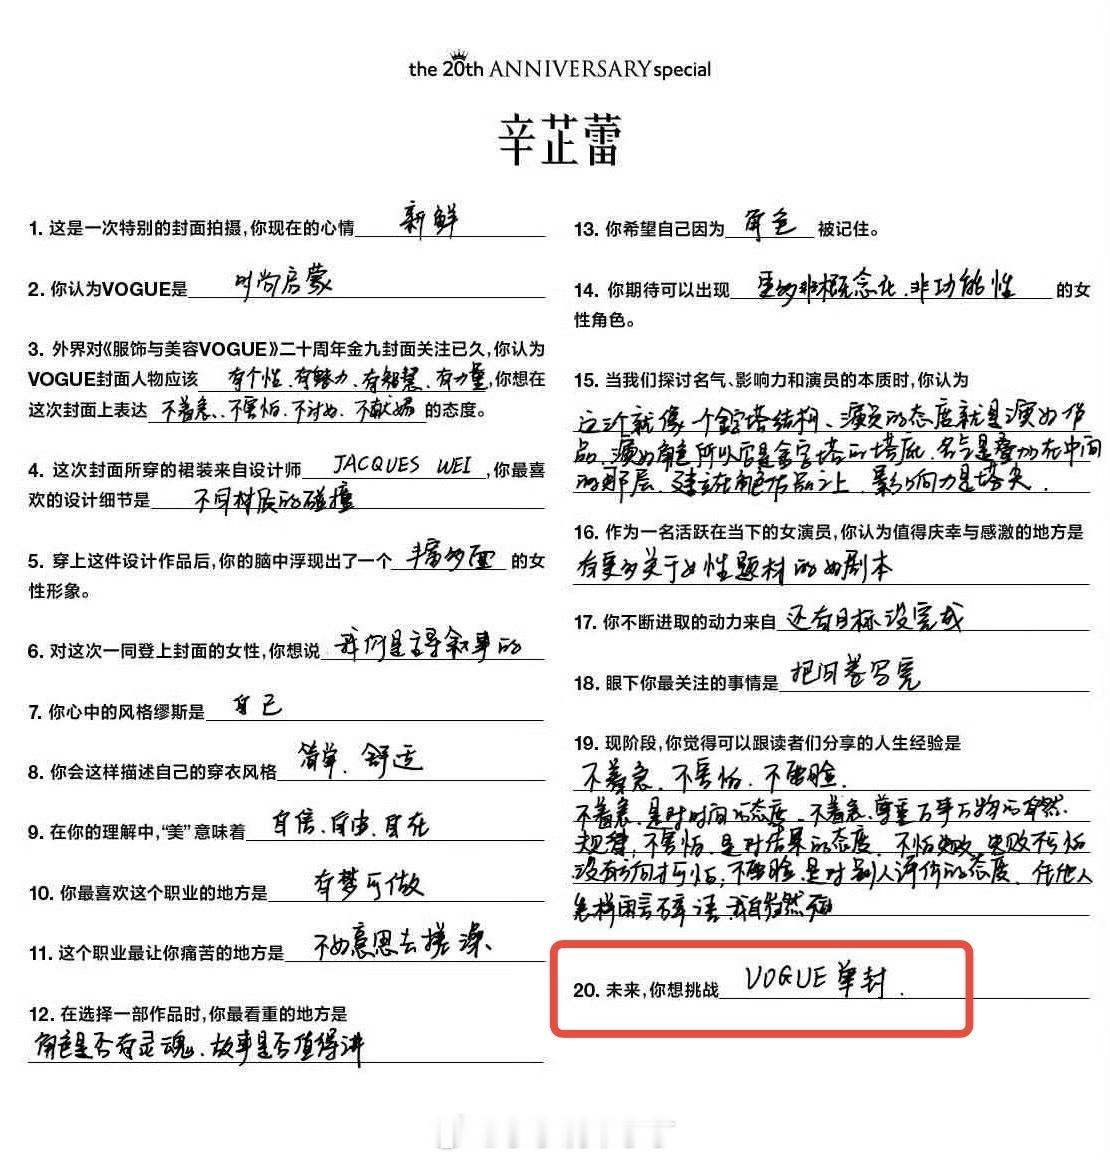 the 20th ANNIVERSARY special
辛芷蕾
1. 这是一次特别的封面拍摄,你现在的心情 新鲜
2. 你认为VOGUE是 时尚启蒙
3. 外界对《服饰与美容VOGUE》二十周年金九封面关注已久,你认为
VOGUE封面人物应该 有个性、有魅力、有智慧、有力量,你想在
这次封面上表达 不着急、不害怕、不讨好、不献媚 的态度。
4. 这次封面所穿的裙装来自设计师 JACQUES WEI ,你最喜
欢的设计细节是 不同材质的碰撞
5. 穿上这件设计作品后,你的脑中浮现出了一个 丰富多面 的女
性形象。
6. 对这次一同登上封面的女性,你想说 我们是主导叙事的
7. 你心中的风格缪斯是 自己
8. 你会这样描述自己的穿衣风格 简单、舒适
9. 在你的理解中,“美”意味着 自信、自由、自在
10. 你最喜欢这个职业的地方是 有梦可做
11. 这个职业最让你痛苦的地方是 不好意思去搓澡、
12. 在选择一部作品时,你最看重的地方是
角色是否有灵魂、故事是否值得讲
13. 你希望自己因为 角色 被记住。
14. 你期待可以出现 更多非概念化、非功能性 的女
性角色。
15. 当我们探讨名气、影响力和演员的本质时,你认为
这个就像一个金字塔结构、演员的态度就是演好作
品、演好角色所以它是金字塔的塔底、名气是叠加在中间
的那层、建立在角色作品之上、影响力是塔尖.
16. 作为一名活跃在当下的女演员,你认为值得庆幸与感激的地方是
有更多关于女性题材的好剧本
17. 你不断进取的动力来自 还有目标没完成
18. 眼下你最关注的事情是 把问卷写完
19. 现阶段,你觉得可以跟读者们分享的人生经验是
不着急、不害怕、不要脸.
不着急、是对时间的态度、不着急、尊重万事万物的自然
规律,不害怕、是对结果的态度、不怕失败、失败不可怕
没有方向才可怕,不要脸、是对别人评价的态度、任他人
怎样闲言碎语、我自岿然不动
20. 未来,你想挑战 VOGUE单封.